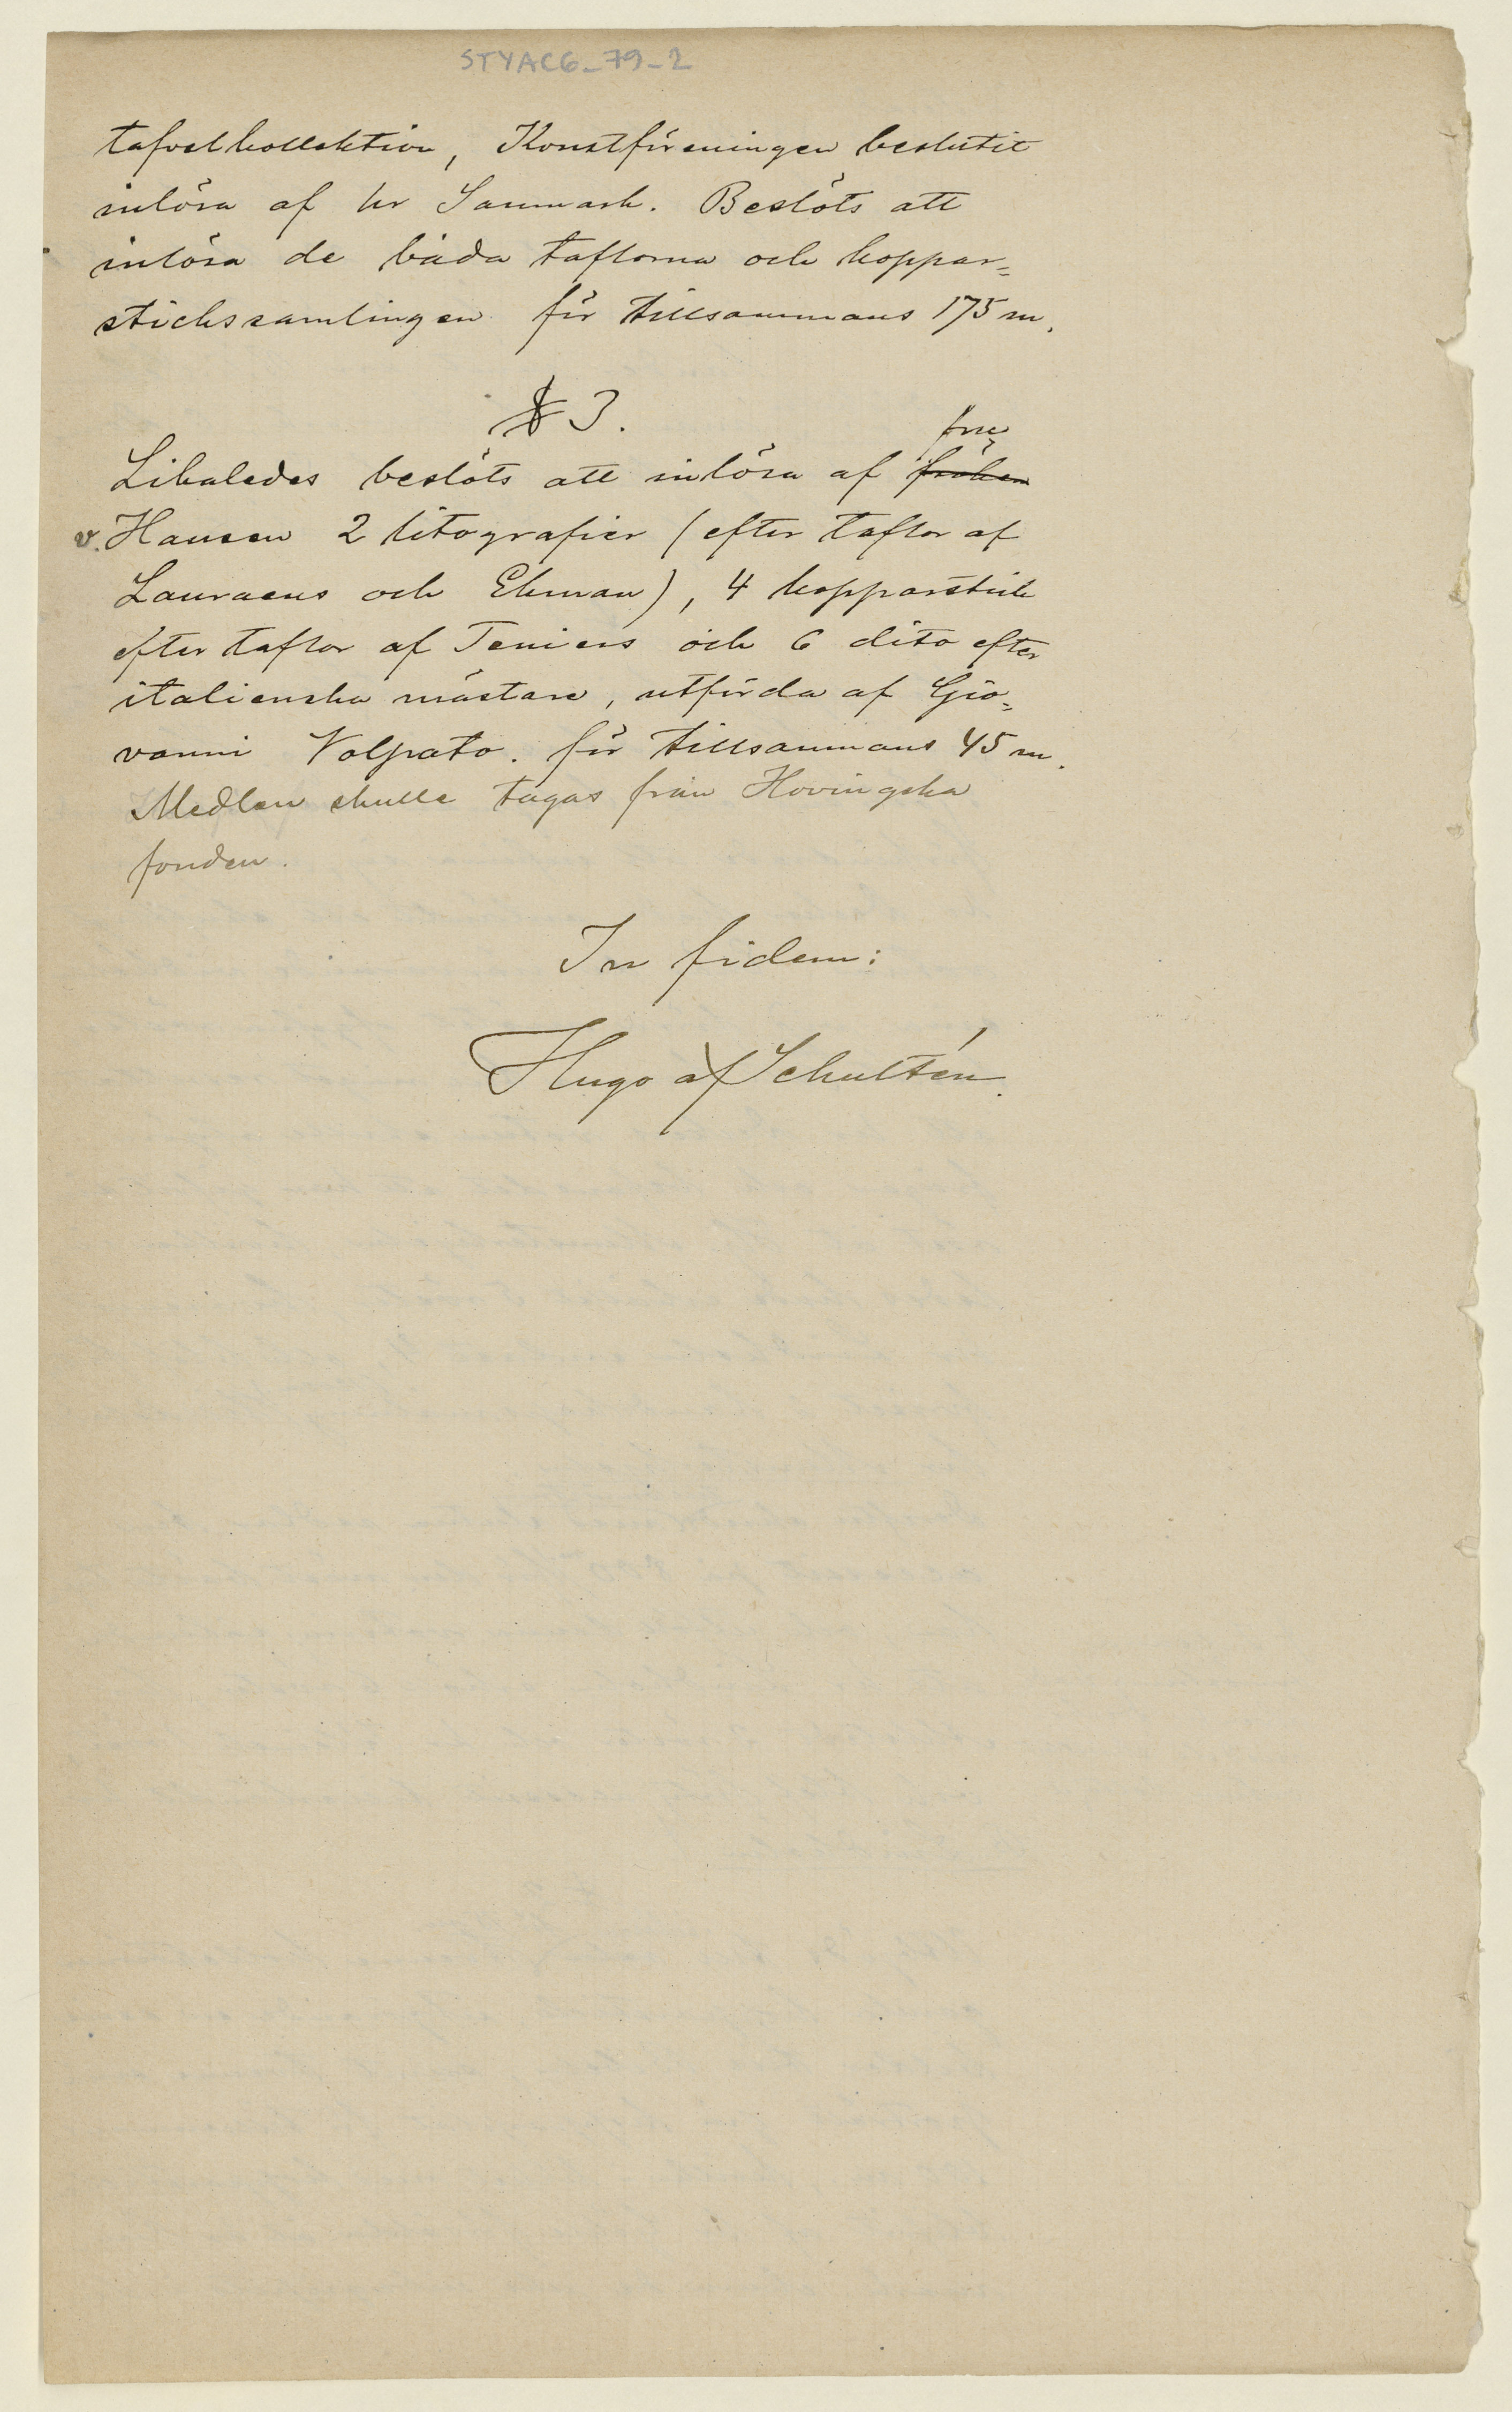 STYAC6_79_2
tafvelkollektion, Konstföreningen beslutit
inlösa af hr Sanmark. Beslöts att
inlösa de båda taflorna och koppar=
stickssamlingen för tillsammans 175 m.
§ 3.
fru
Likaledes beslöts att inlösa af fröken
v. Hausen 2 litografier (efter taflor af
Lauraeus och Ekman), 4 kopparstick
efter taflor af Teniers och 6 dito efter
italienska mästare, utförda af Gio=
vanni Volpato. för tillsammans 45 m.
Medlen skulle tagas från Hovingska
fonden.
In fidem:
Hugo af Schultén.